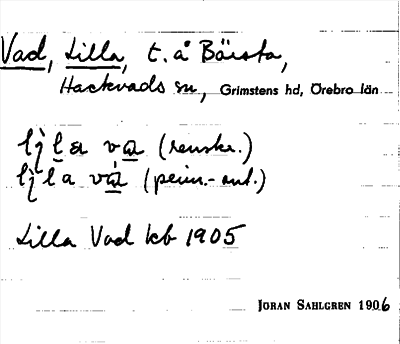 Vad, Lilla, t. å Bärsta,
Hackvads sn, Grimstens hd, Örebro län
va (renskr.)
(penn.-ant.)
Lilla Vad kb 1905
JÖRAN SAHLGREN 1906